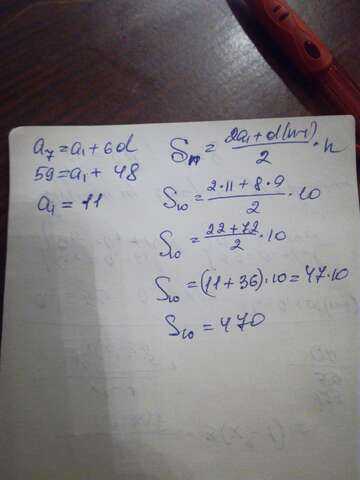 a₇ = a₁ + 6d
59 = a₁ + 48
a₁ = 11
Sₙ = (2a₁ + d(n-1))/2 · n
S₁₀ = (2·11 + 8·9)/2 · 10
S₁₀ = (22 + 72)/2 · 10
S₁₀ = (11 + 36)·10 = 47·10
S₁₀ = 470